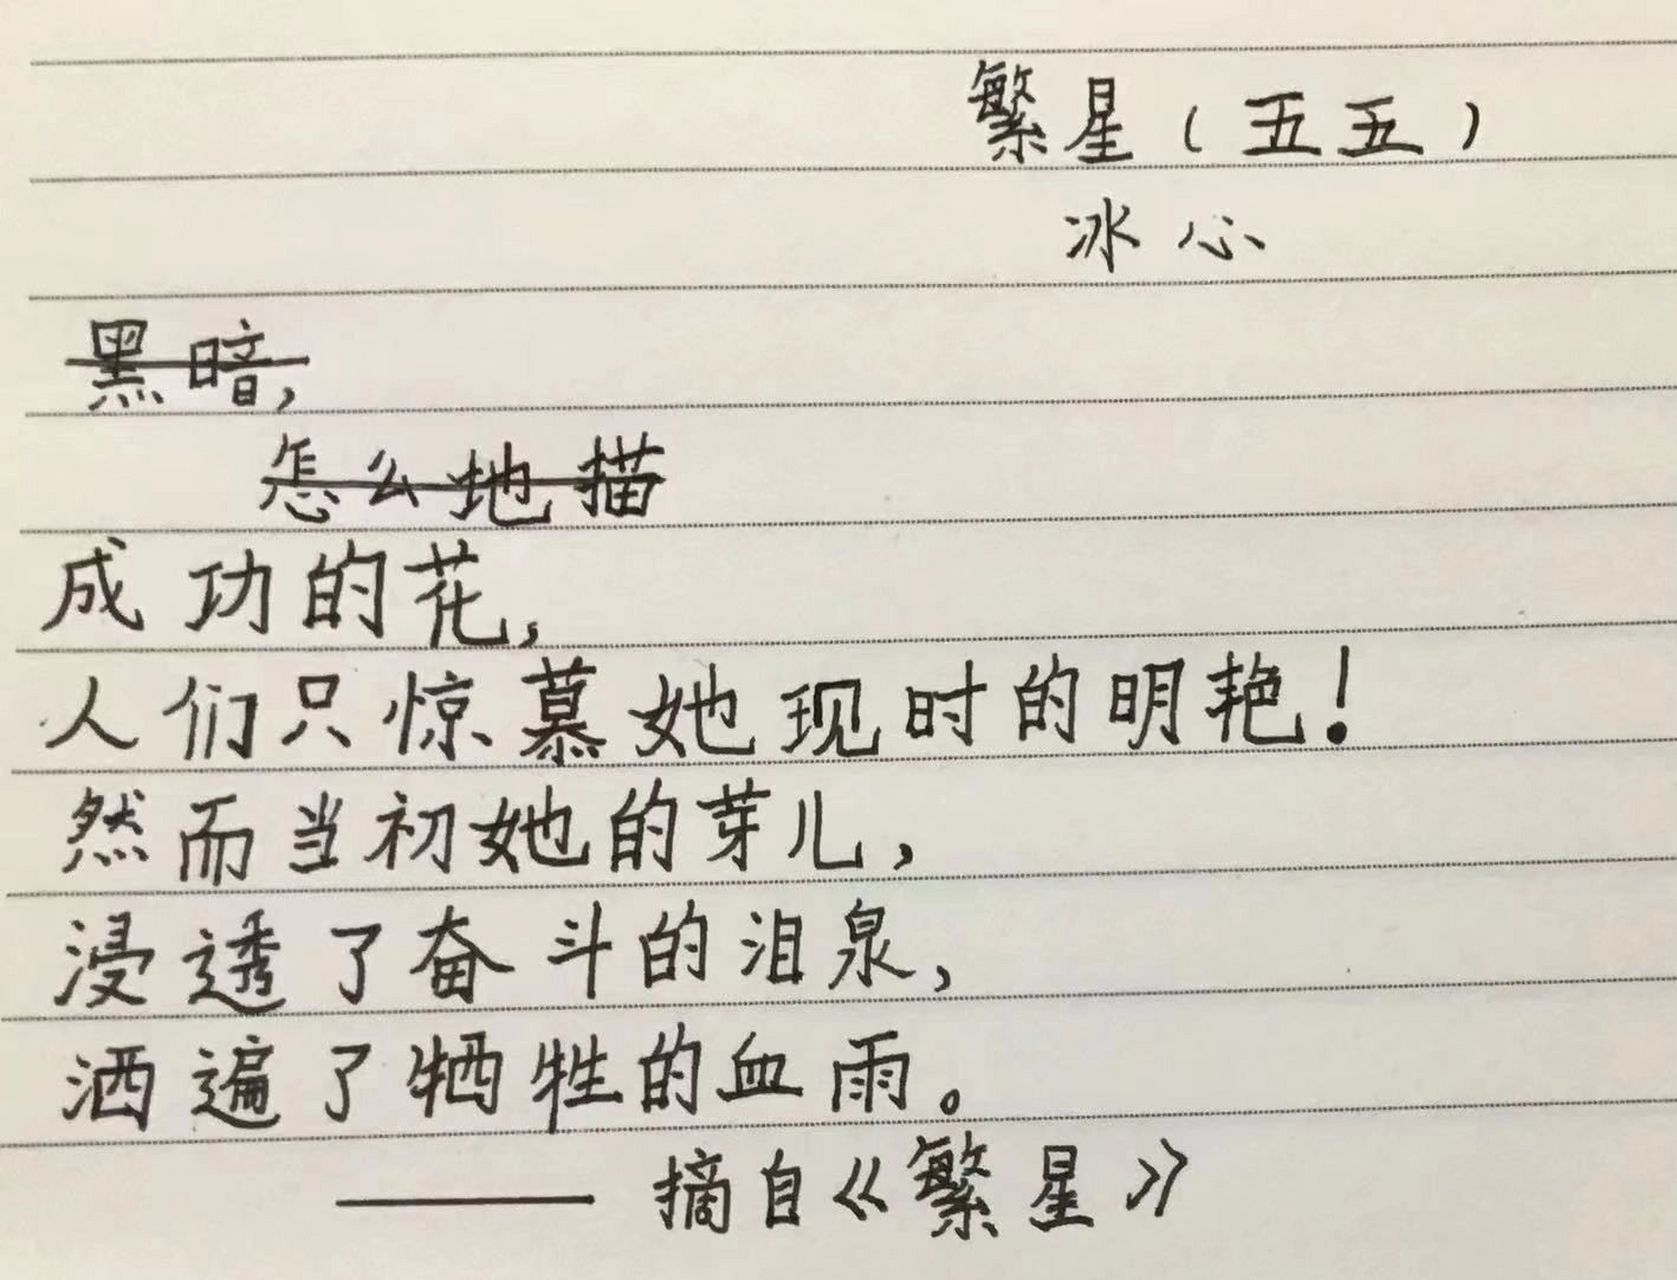 繁星（五五）
冰心
黑暗，
怎么地描
成功的花，
人们只惊慕她现时的明艳！
然而当初她的芽儿，
浸透了奋斗的泪泉，
洒遍了牺牲的血雨。
——摘自《繁星》